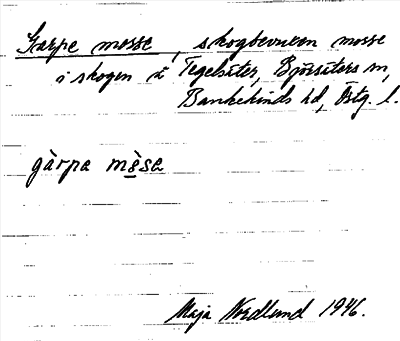 Garpe mosse, skogbevuxen mosse
i skogen å Tegelsäter, Björsäters sn,
Bankekinds hd, Östg. l.
gàrpa mòse
Maja Nordlund 1946.